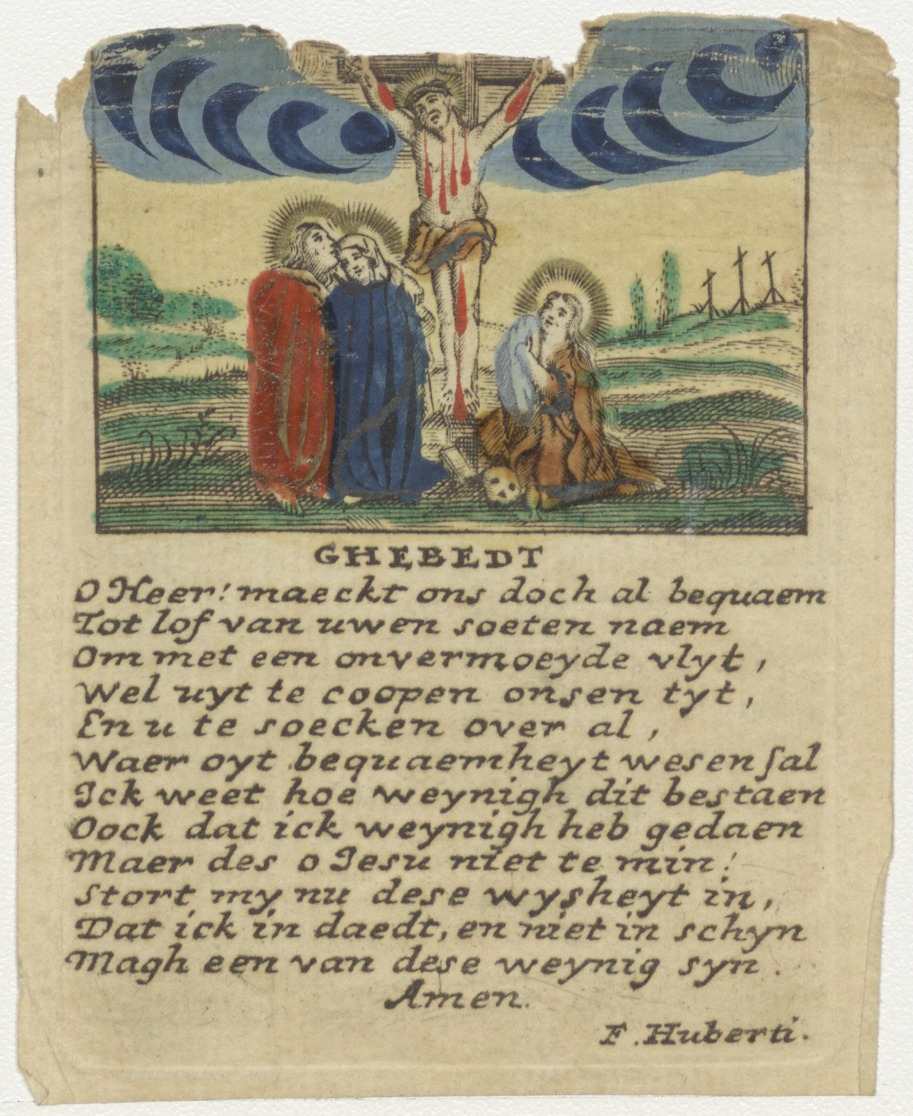 GHEBEDT
O Heer! maeckt ons doch al bequaem
Tot lof van uwen soeten naem
Om met een onvermoeyde vlyt,
Wel uyt te coopen onsen tyt,
En u te soecken over al,
Waer oyt bequaemheyt wesen sal
Ick weet hoe weynigh dit bestaen
Oock dat ick weynigh heb gedaen
Maer des o Iesu niet te min!
Stort my nu dese wysheyt in,
Dat ick in daedt, en niet in schyn
Magh een van dese weynig syn.
Amen.
F. Huberti.